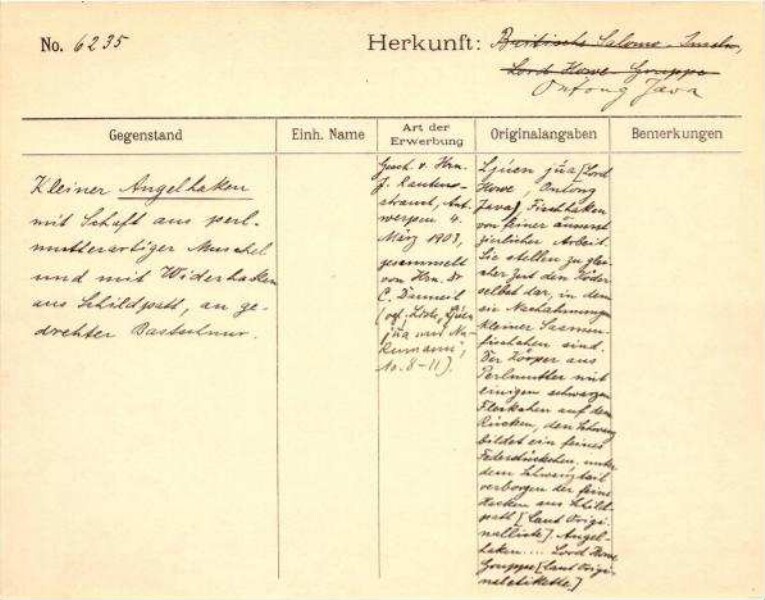 No. 6235
Herkunft: Britische Salomo-Inseln,
Lord Howe-Gruppe
Ontong Java
Gegenstand
Einh. Name
Art der Erwerbung
Originalangaben
Bemerkungen
Kleiner Angelhaken
mit Schaft aus perl-
mutterartiger Muschel
und mit Widerhaken
aus Schildpatt, an ge-
drehter Bastschnur.
Gesch. v. Hrn.
J. Rautens-
strauch, Ant-
werpen 4.
März 1903,
gesammelt
von Hrn. Dr
C.
(vgl. Liste, Ljuen
jüa und Nu-
kumanu,
No. 8-11).
Ljuen jüa [Lord
Howe, Ontong
Java] Fischhaken
von feiner äusserst
zierlicher Arbeit.
Sie stellen zu glei-
cher Zeit den Köder
selbst dar, in dem
sie Nachahmungen
kleiner
fischchen sind.
Der Körper aus
Perlmutter mit
einigen schwarzen
Fleckchen auf dem
Rücken, den Schwanz
bildet ein feines
Federstückchen, unter
dem Schwanzteil
verborgen der feine
Haken aus Schild-
patt [laut Origi-
nalliste]. Angel-
haken.... Lord Howe
Gruppe [laut Origi-
naletikette.]